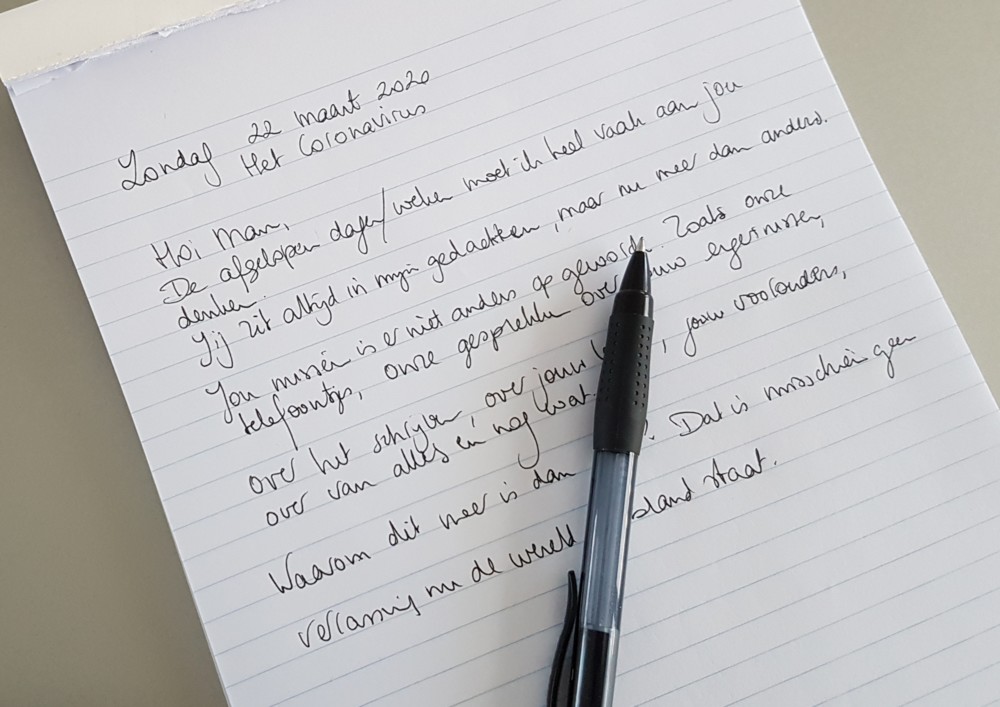 Zondag 22 maart 2020
Het Coronavirus
Hoi Mam,
De afgelopen dagen/weken moet ik heel vaak aan jou
denken.
Jij zit altijd in mijn gedachten, maar nu meer dan anders.
Jou missen is er niet anders op geworden. Zoals onze
telefoontjes, onze gesprekken over jouw ergernissen,
over het schrijven, over jouw , jouw voorouders,
over van alles en nog wat.
Waarom dit meer is dan ? Dat is misschien geen
verrassing nu de wereld staat.